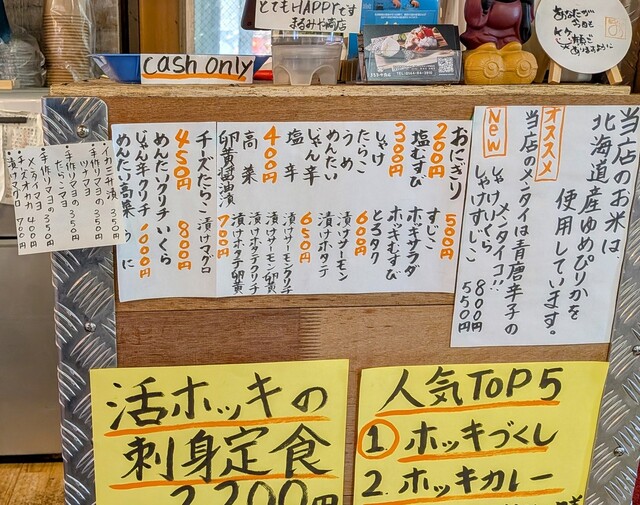 とてもHAPPYです
まるみや商店
cash only
あなたが
今日も
笑顔で
ありますように
当店のお米は、
北海道産ゆめぴりかを
使用しています。
オススメ
当店のメンタイは青唐辛子の
メンタイコ!!
New
しゃけいくら 800円
しゃけすじこ 550円
おにぎり
200円
塩むすび
300円
しゃけ
たらこ
うめ
めんたい
じゃん辛
塩辛
400円
高菜
卵黄醤油漬
すじこ 500円
ホッキサラダ
ホッキむすび
とろタク
600円
漬けサーモン
漬けホタテ
650円
漬けサーモンクリチ
漬けホタテクリチ
漬けサーモン卵黄
漬けホタテ卵黄
700円
チーズたらこ
450円
めんたいクリチ
じゃん辛クリチ
めんたい高菜
漬けマグロ
800円
いくら
1000円
うに
イカ三升漬 350円
手作りマヨの
ツナマヨ 350円
手作りマヨの
たらこマヨ 350円
手作りマヨの
メンタイマヨ 350円
チーズオカカ 400円
漬マグロ 700円
活ホッキの
刺身定食
2,200円
人気TOP5
1 ホッキづくし
2. ホッキカレー